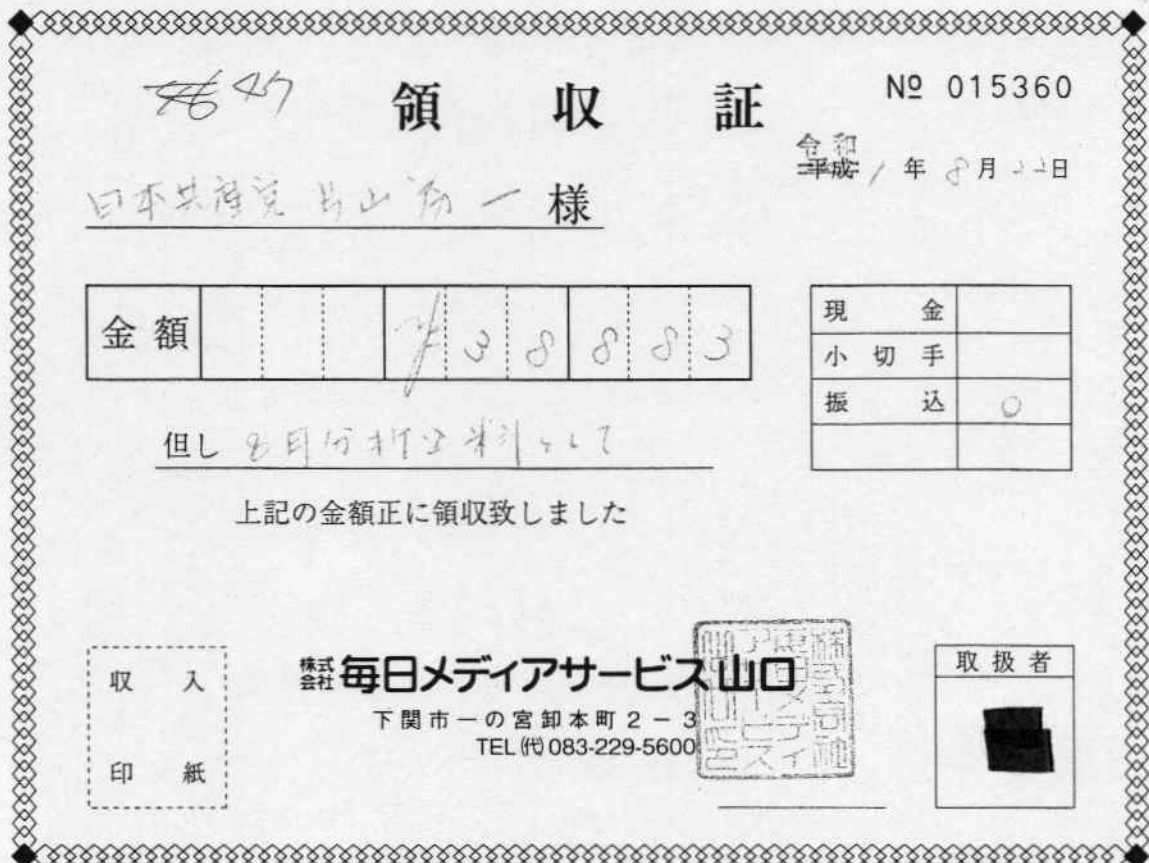 47
領収証
№ 015360
令和
平成 1年 8月22日
日本共産党 片山 一 様
金額 ¥38883
現金
小切手
振込 ○
但し 8月分折込料として
上記の金額正に領収致しました
収入
印紙
株式会社 毎日メディアサービス山口
下関市一の宮卸本町2-3
TEL(代)083-229-5600
取扱者